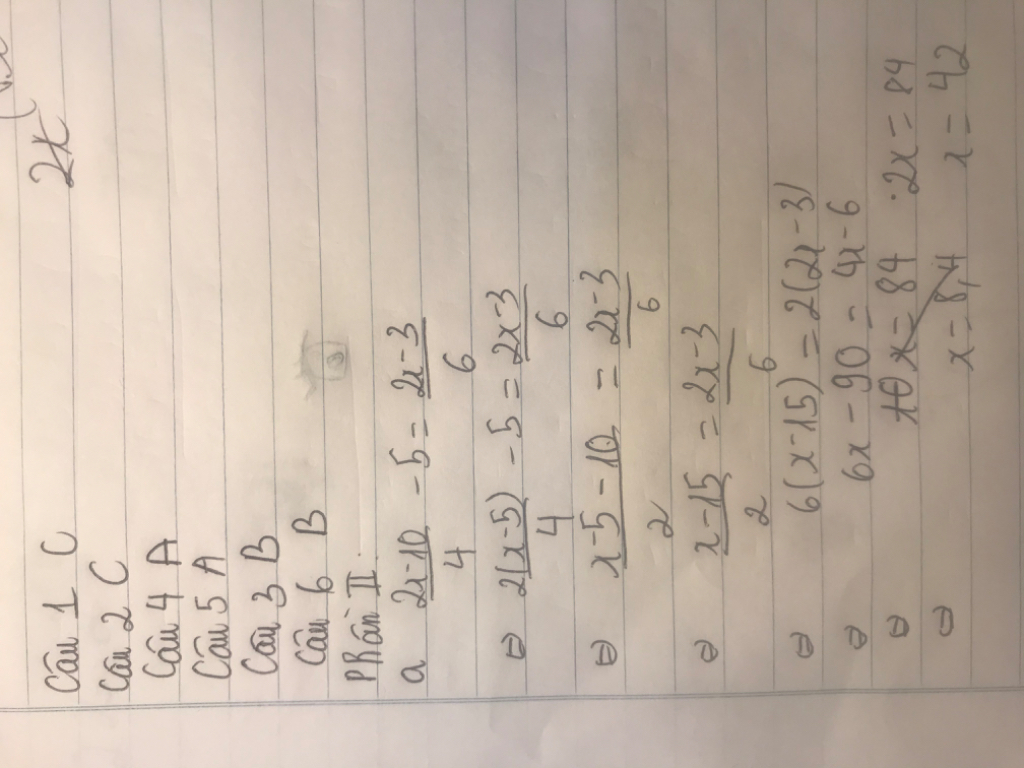 2x
Câu 1 C
Câu 2 C
Câu 4 A
Câu 5 A
Câu 3 B
Câu 6 B
Phần II
a 2x-10/4 - 5 = 2x-3/6
⇔ 2(x-5)/4 - 5 = 2x-3/6
⇔ x-5-10/2 = 2x-3/6
⇔ x-15/2 = 2x-3/6
⇔ 6(x-15) = 2(2x-3)
⇔ 6x-90 = 4x-6
⇔ 10x = 84 2x = 84
⇔ x = 8,4 x = 42